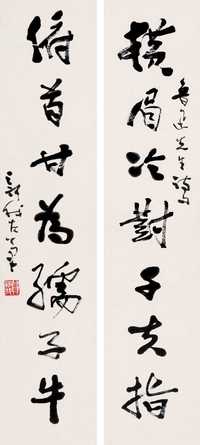 横眉冷對千夫指
魯迅先生詩句
俯首甘為孺子牛
新我左筆